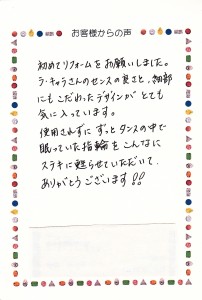 お客様からの声
初めてリフォームをお願いしました。
ラ・キャラさんのセンスの良さと、細部
にもこだわったデザインが とても
気に入っています。
使用されずに ずっと タンスの中で
眠っていた指輪を こんなに
ステキに 甦らせていただいて、
ありがとうございます!!